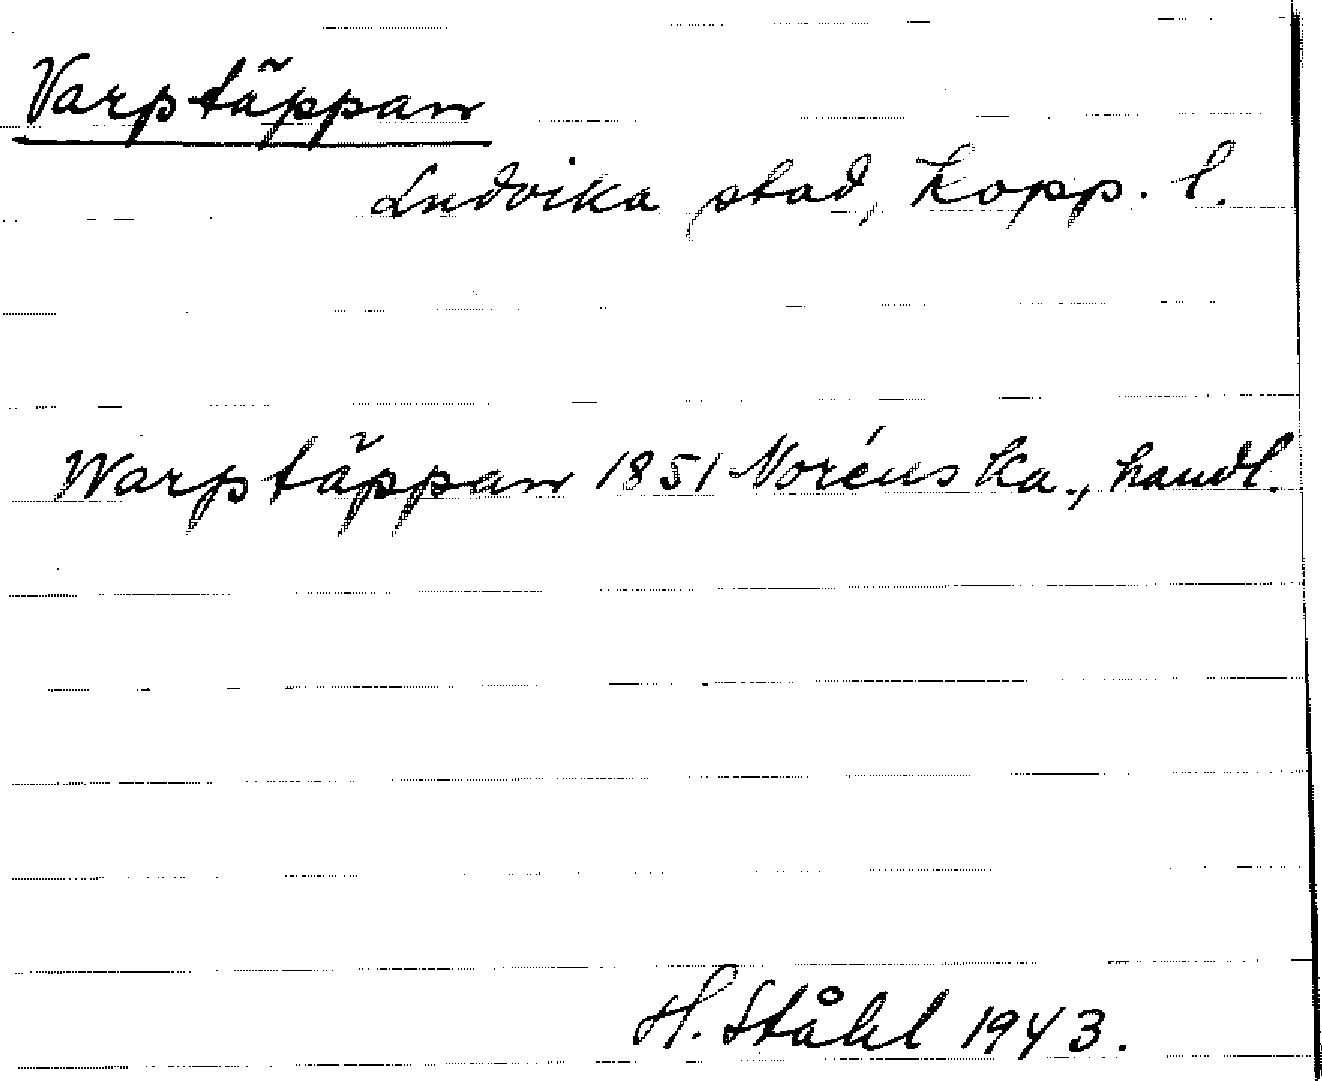 Varptäppan
Ludvika stad, Kopp. l.
Warptäppan 1851 Noréns ka., handl.
H. Ståhl 1943.